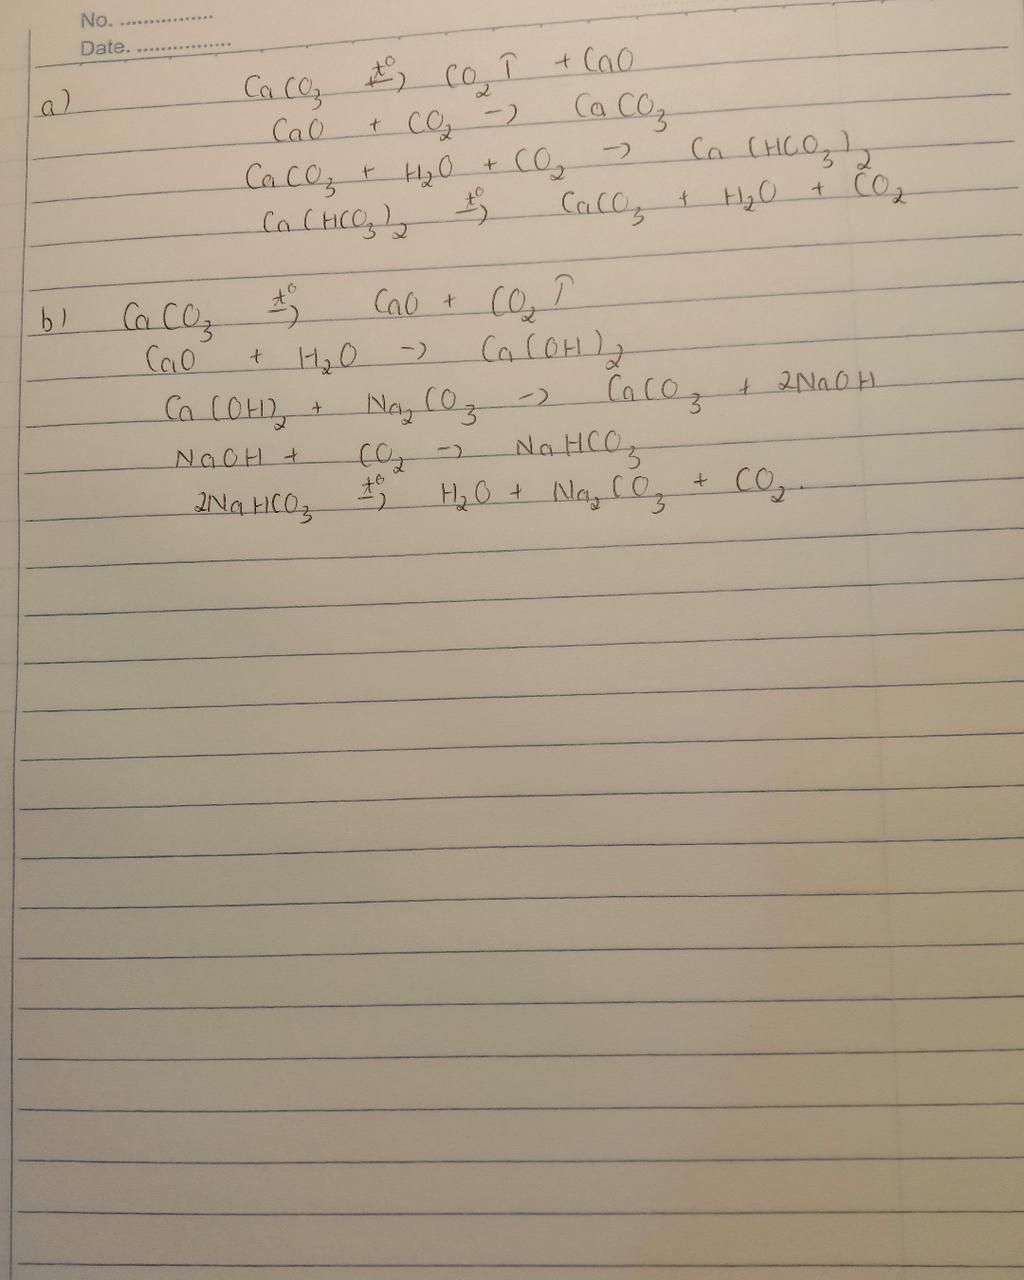 No. ................
Date. ................
a) CaCO₃ t⁰→ CO₂↑ + CaO
CaO + CO₂ → CaCO₃
CaCO₃ + H₂O + CO₂ → Ca(HCO₃)₂
Ca(HCO₃)₂ t⁰→ CaCO₃ + H₂O + CO₂
b) CaCO₃ t⁰→ CaO + CO₂↑
CaO + H₂O → Ca(OH)₂
Ca(OH)₂ + Na₂CO₃ → CaCO₃ + 2NaOH
NaOH + CO₂ → NaHCO₃
2NaHCO₃ t⁰→ H₂O + Na₂CO₃ + CO₂.